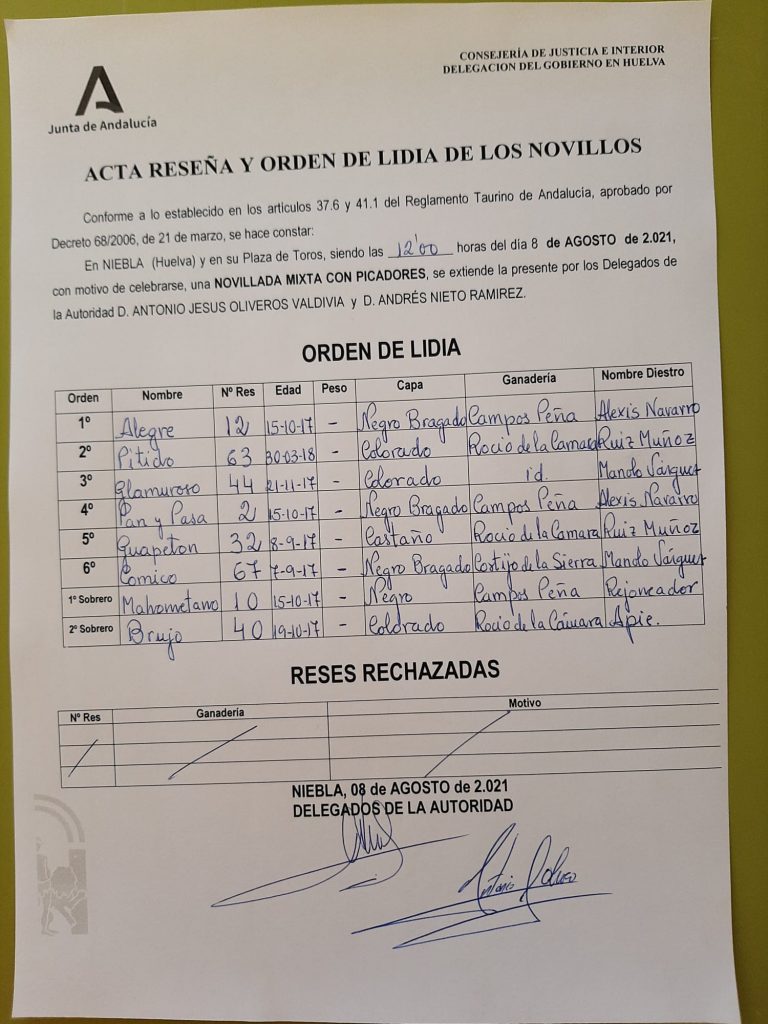 CONSEJERÍA DE JUSTICIA E INTERIOR
DELEGACION DEL GOBIERNO EN HUELVA
Junta de Andalucía
ACTA RESEÑA Y ORDEN DE LIDIA DE LOS NOVILLOS
Conforme a lo establecido en los articulos 37.6 y 41.1 del Reglamento Taurino de Andalucía, aprobado por
Decreto 68/2006, de 21 de marzo, se hace constar:
En NIEBLA (Huelva) y en su Plaza de Toros, siendo las 12'00 horas del día 8 de AGOSTO de 2.021,
con motivo de celebrarse, una NOVILLADA MIXTA CON PICADORES, se extiende la presente por los Delegados de
la Autoridad D. ANTONIO JESUS OLIVEROS VALDIVIA y D. ANDRÉS NIETO RAMIREZ.
ORDEN DE LIDIA
Orden Nombre Nº Res Edad Peso Capa Ganadería Nombre Diestro
1º Alegre 12 15-10-17 - Negro Bragado Campos Peña Alexis Navarro
2º Pitido 63 30-03-18 - Colorado Rocio de la Camara Ruiz Muñoz
3º Glamuroso 44 21-11-17 - Colorado id. Manolo Vázquez
4º Pan y Pasa 2 15-10-17 - Negro Bragado Campos Peña Alexis Navarro
5º Guapeton 32 8-9-17 - Castaño Rocio de la Camara Ruiz Muñoz
6º Comico 67 7-9-17 - Negro Bragado Cortijo de la Sierra Manolo Vázquez
1º Sobrero Mahometano 10 15-10-17 - Negro Campos Peña Rejoneador
2º Sobrero Brujo 40 19-10-17 - Colorado Rocio de la Cámara Apie.
RESES RECHAZADAS
Nº Res Ganaderia Motivo
NIEBLA, 08 de AGOSTO de 2.021
DELEGADOS DE LA AUTORIDAD
Antonio